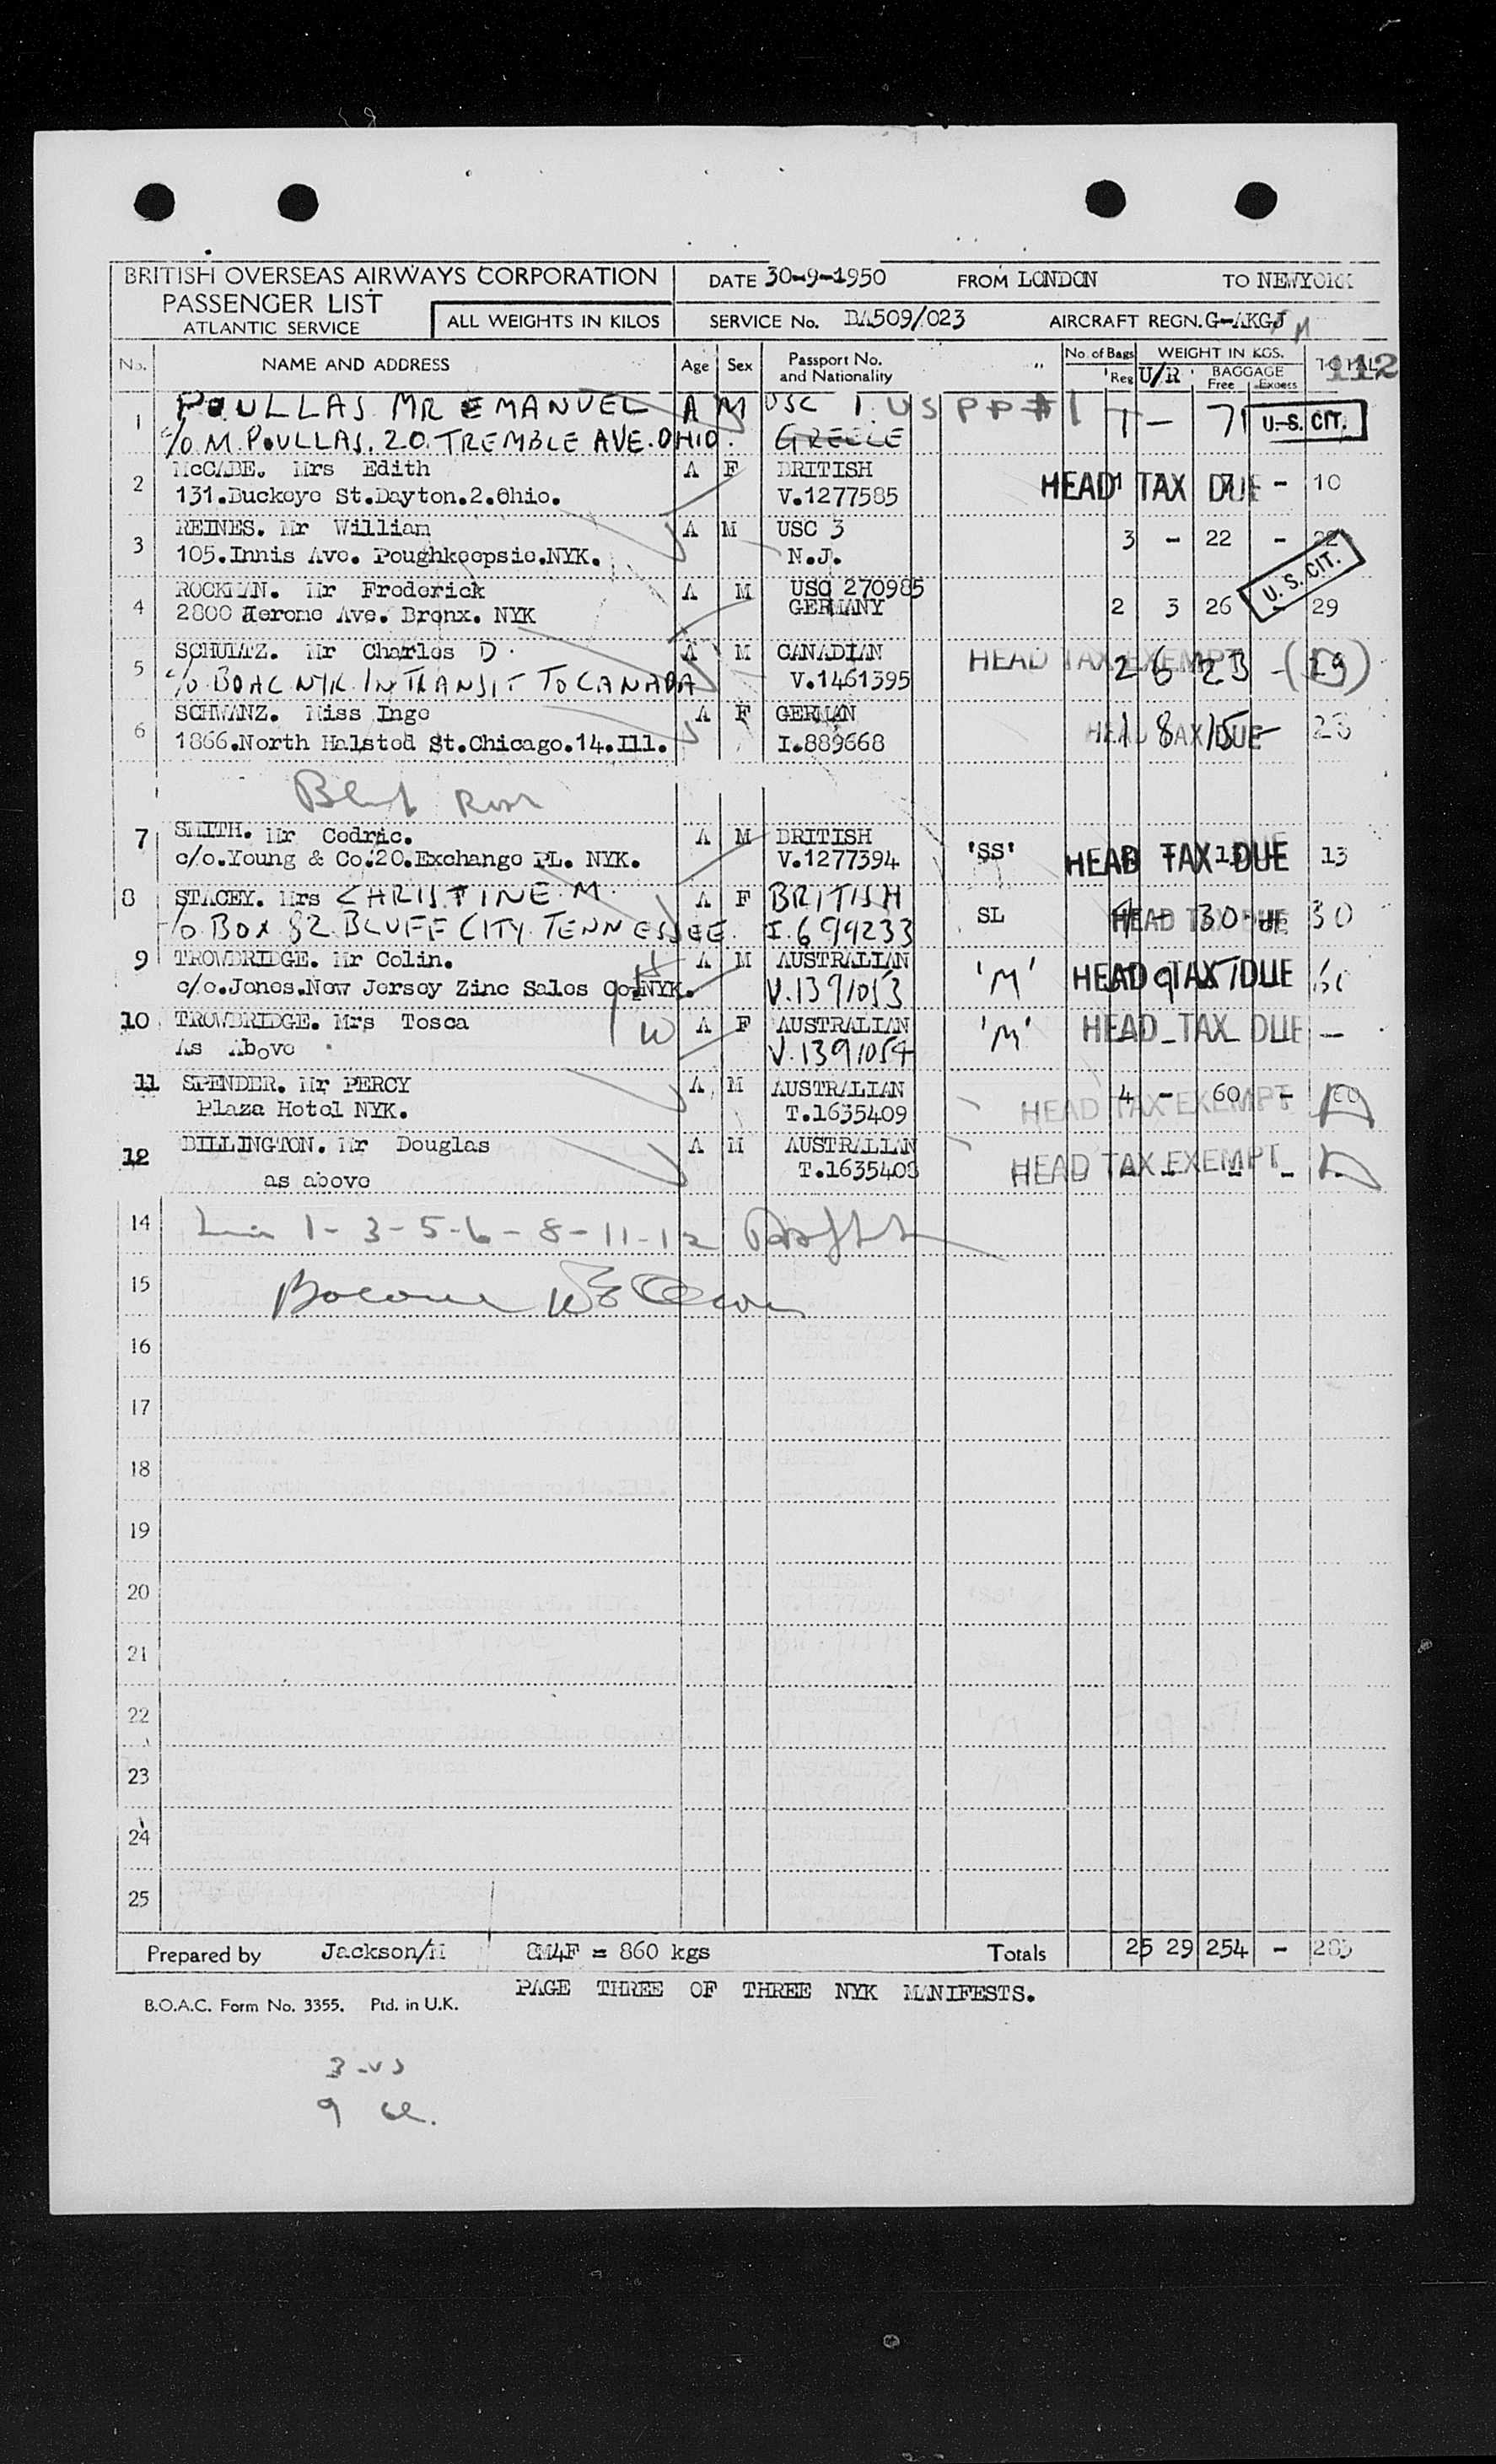 BRITISH OVERSEAS AIRWAYS CORPORATION
PASSENGER LIST
ATLANTIC SERVICE
ALL WEIGHTS IN KILOS
DATE 30-9-1950 FROM LONDON TO NEWYORK
SERVICE No. BA509/023 AIRCRAFT REGN. G-AKGJ M
No. NAME AND ADDRESS Age Sex Passport No. and Nationality No. of Bags Reg WEIGHT IN KGS. U/R BAGGAGE Free Excess TOTAL 112
1 POULLAS MR EMANUEL A M USC 1. US PP #1 1 - 7 U.S. CIT.
c/o M. POULLAS. 20. TREMBLE AVE. OHIO. GREECE
2 McCABE. Mrs Edith A F BRITISH
131.Buckeye St.Dayton.2.Ohio. V.1277585 HEAD TAX DUE - 10
3 REINES. Mr William A M USC 3 3 - 22 - 22
105.Innis Ave. Poughkeepsie.NYK. N.J.
U. S. CIT.
4 ROCKMAN. Mr Frederick A M USC 270985
2800 Jerome Ave. Bronx. NYK GERMANY 2 3 26 29
5 SCHULTZ. Mr Charles D. A M CANADIAN HEAD TAX EXEMPT 2 6 23 - (29)
c/o BOAC NYK IN TRANSIT TO CANADA V.1461395
6 SCHWANZ. Miss Inge A F GERMAN
1866.North Halsted St.Chicago.14.Ill. I.889668 HEAD TAX DUE 1 8 15 - 23
7 SMITH. Mr Cedric. A M BRITISH 'SS' HEAD TAX DUE 13
c/o.Young & Co.20.Exchange PL. NYK. V.1277394
8 STACEY. Mrs CHRISTINE M. A F BRITISH SL HEAD TAX DUE 30 30
c/o BOX 82 BLUFF CITY TENNESSEE. I.699233
9 TROWBRIDGE. Mr Colin. H A M AUSTRALIAN 'M' HEAD TAX DUE
c/o.Jones.New Jersey Zinc Sales Co.NYK. V.1391053
10 TROWBRIDGE. Mrs Tosca W A F AUSTRALIAN 'M' HEAD TAX DUE -
As Above V.1391054
11 SPENDER. Mr PERCY A M AUSTRALIAN 4 - 60 - 60
Plaza Hotel NYK. T.1635409 HEAD TAX EXEMPT
12 BILLINGTON. Mr Douglas A M AUSTRALIAN
as above T.1635408 HEAD TAX EXEMPT
14 1-3-5-6-8-11-12
15
16
17
18
19
20
21
22
23
24
25
Prepared by Jackson/M 8M4F = 860 kgs Totals 25 29 254 - 283
PAGE THREE OF THREE NYK MANIFESTS.
B.O.A.C. Form No. 3355. Ptd. in U.K.
3 US
9